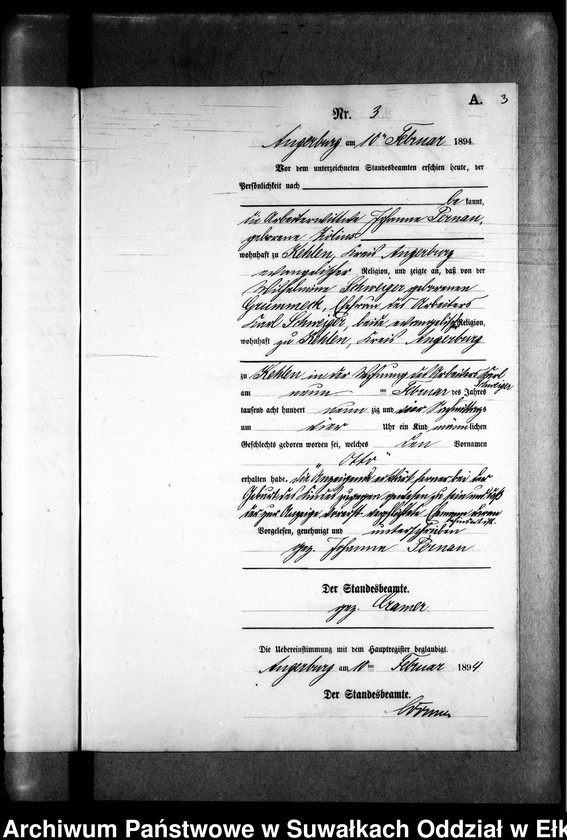 A. 3
Nr. 3
Angerburg am 10ten Februar 1894
Vor dem unterzeichneten Standesbeamten erschien heute, der
Persönlichkeit nach
be kannt,
die Arbeiterwittwe Johanne Pernau,
geborene
wohnhaft zu Kehlen, Kreis Angerburg
evangelischer Religion, und zeigte an, daß von der
Wilhelmine Schweiger geborenen
Grummeck, Ehefrau des Arbeiters
Karl Schweiger, beide evangelischer Religion,
wohnhaft zu Kehlen, Kreis Angerburg
zu Kehlen in der Wohnung des Arbeiters Karl
Schweiger
am neun ten Februar des Jahres
tausend acht hundert neun zig und vier Nachmittags
um vier Uhr ein Kind männlichen
Geschlechts geboren worden sei, welches den Vornamen
"Otto"
erhalten habe. Die Anzeigende erklärt ferner bei der
Geburt des Kindes zugegen gewesen zu sein und daß
der zur Anzeige verpflichtete
verhindert ist.
Vorgelesen, genehmigt und unterschrieben
gez. Johanne Pernau
Der Standesbeamte.
gez. Cramer
Die Uebereinstimmung mit dem Hauptregister beglaubigt.
Angerburg am 10ten Februar 1894
Der Standesbeamte.
Archiwum Państwowe w Suwałkach Oddział w Ełk